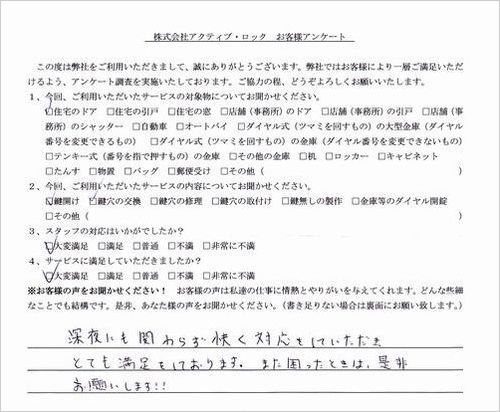 株式会社アクティブ・ロック　お客様アンケート
この度は弊社をご利用いただきまして、誠にありがとうございます。弊社ではお客様により一層ご満足いただ
けるよう、アンケート調査を実施いたしております。ご協力の程、どうぞよろしくお願いいたします。
1、今回、ご利用いただいたサービスの対象物についてお聞かせください。
☑住宅のドア　□住宅の引戸　□住宅の窓　□店舗（事務所）のドア　□店舗（事務所）の引戸　□店舗（事
務所）のシャッター　□自動車　□オートバイ　□ダイヤル式（ツマミを回すもの）の大型金庫（ダイヤル
番号を変更できるもの）　□ダイヤル式（ツマミを回すもの）の金庫（ダイヤル番号を変更できないもの）
□テンキー式（番号を指で押すもの）の金庫　□その他の金庫　□机　□ロッカー　□キャビネット
□たんす　□物置　□バッグ　□郵便受け　□その他（　　　　　　　　　　）
2、今回、ご利用いただいたサービスの内容についてお聞かせください。
☑鍵開け　☑鍵穴の交換　□鍵穴の修理　□鍵穴の取付け　□鍵無しの製作　□金庫等のダイヤル開錠
□その他（　　　　　　　　　　）
3、スタッフの対応はいかがでしたか？
☑大変満足　□満足　□普通　□不満　□非常に不満
4、サービスに満足していただきましたか？
☑大変満足　□満足　□普通　□不満　□非常に不満
※お客様の声をお聞かせください！　お客様の声は私達の仕事に情熱とやりがいを与えてくれます。どんな些細
なことでも結構です。是非、あなた様の声をお聞かせください。（書き足りない場合は裏面にお願い致します。）
深夜にも関わらず快く対応をしていただき
とても満足をしております。また困ったときは、是非
お願いします!!